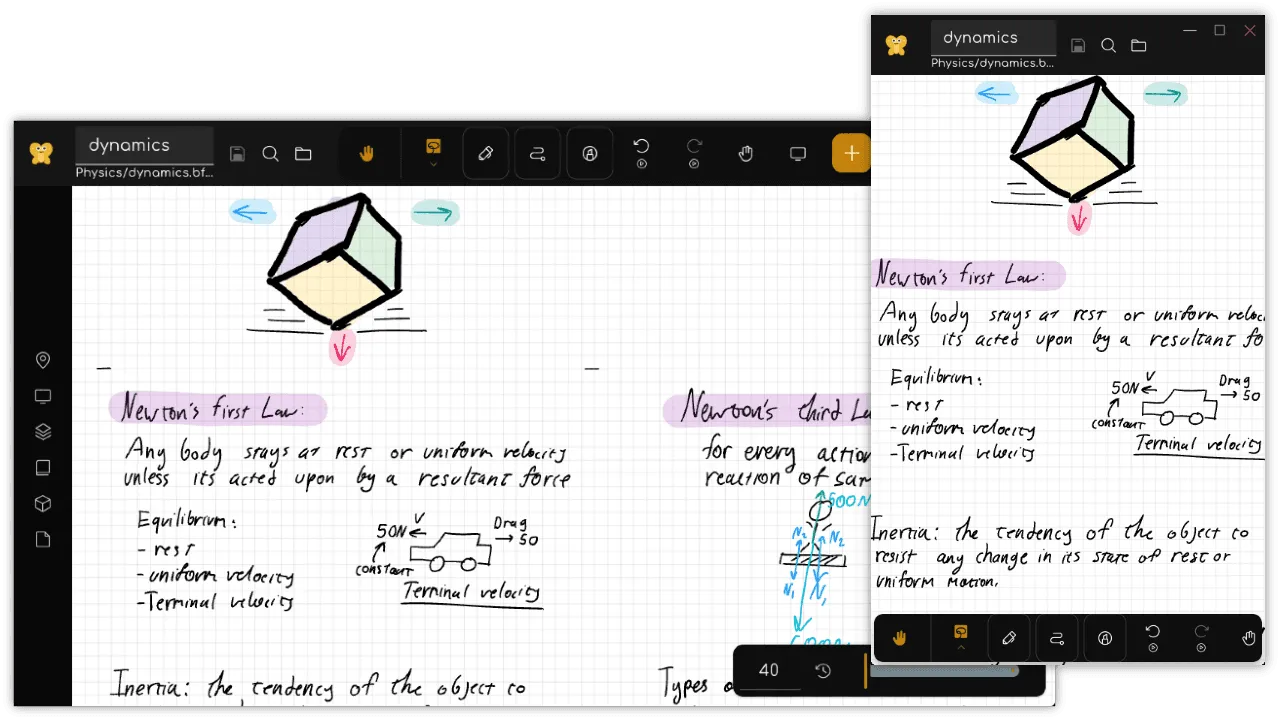 dynamics
Physics/dynamics.bf...
Newton's first Law:
Any body stays at rest or uniform velocity
unless its acted upon by a resultant force
Equilibrium:
- rest
- uniform velocity
- Terminal velocity
V
50N
constant
Drag
50
Terminal velocity
Inertia: the tendency of the object to
Newton's third
for every action
reaction of
500N
N2
N2
N1
N1
Types
40
dynamics
Physics/dynamics.b...
Newton's first Law:
Any body stays at rest or uniform
unless its acted upon by a resultant
Equilibrium:
- rest
- uniform velocity
- Terminal velocity
V
50N
constant
Drag
50
Terminal velocity
Inertia: the tendency of the object to
resist any change in its state of rest or
uniform motion.